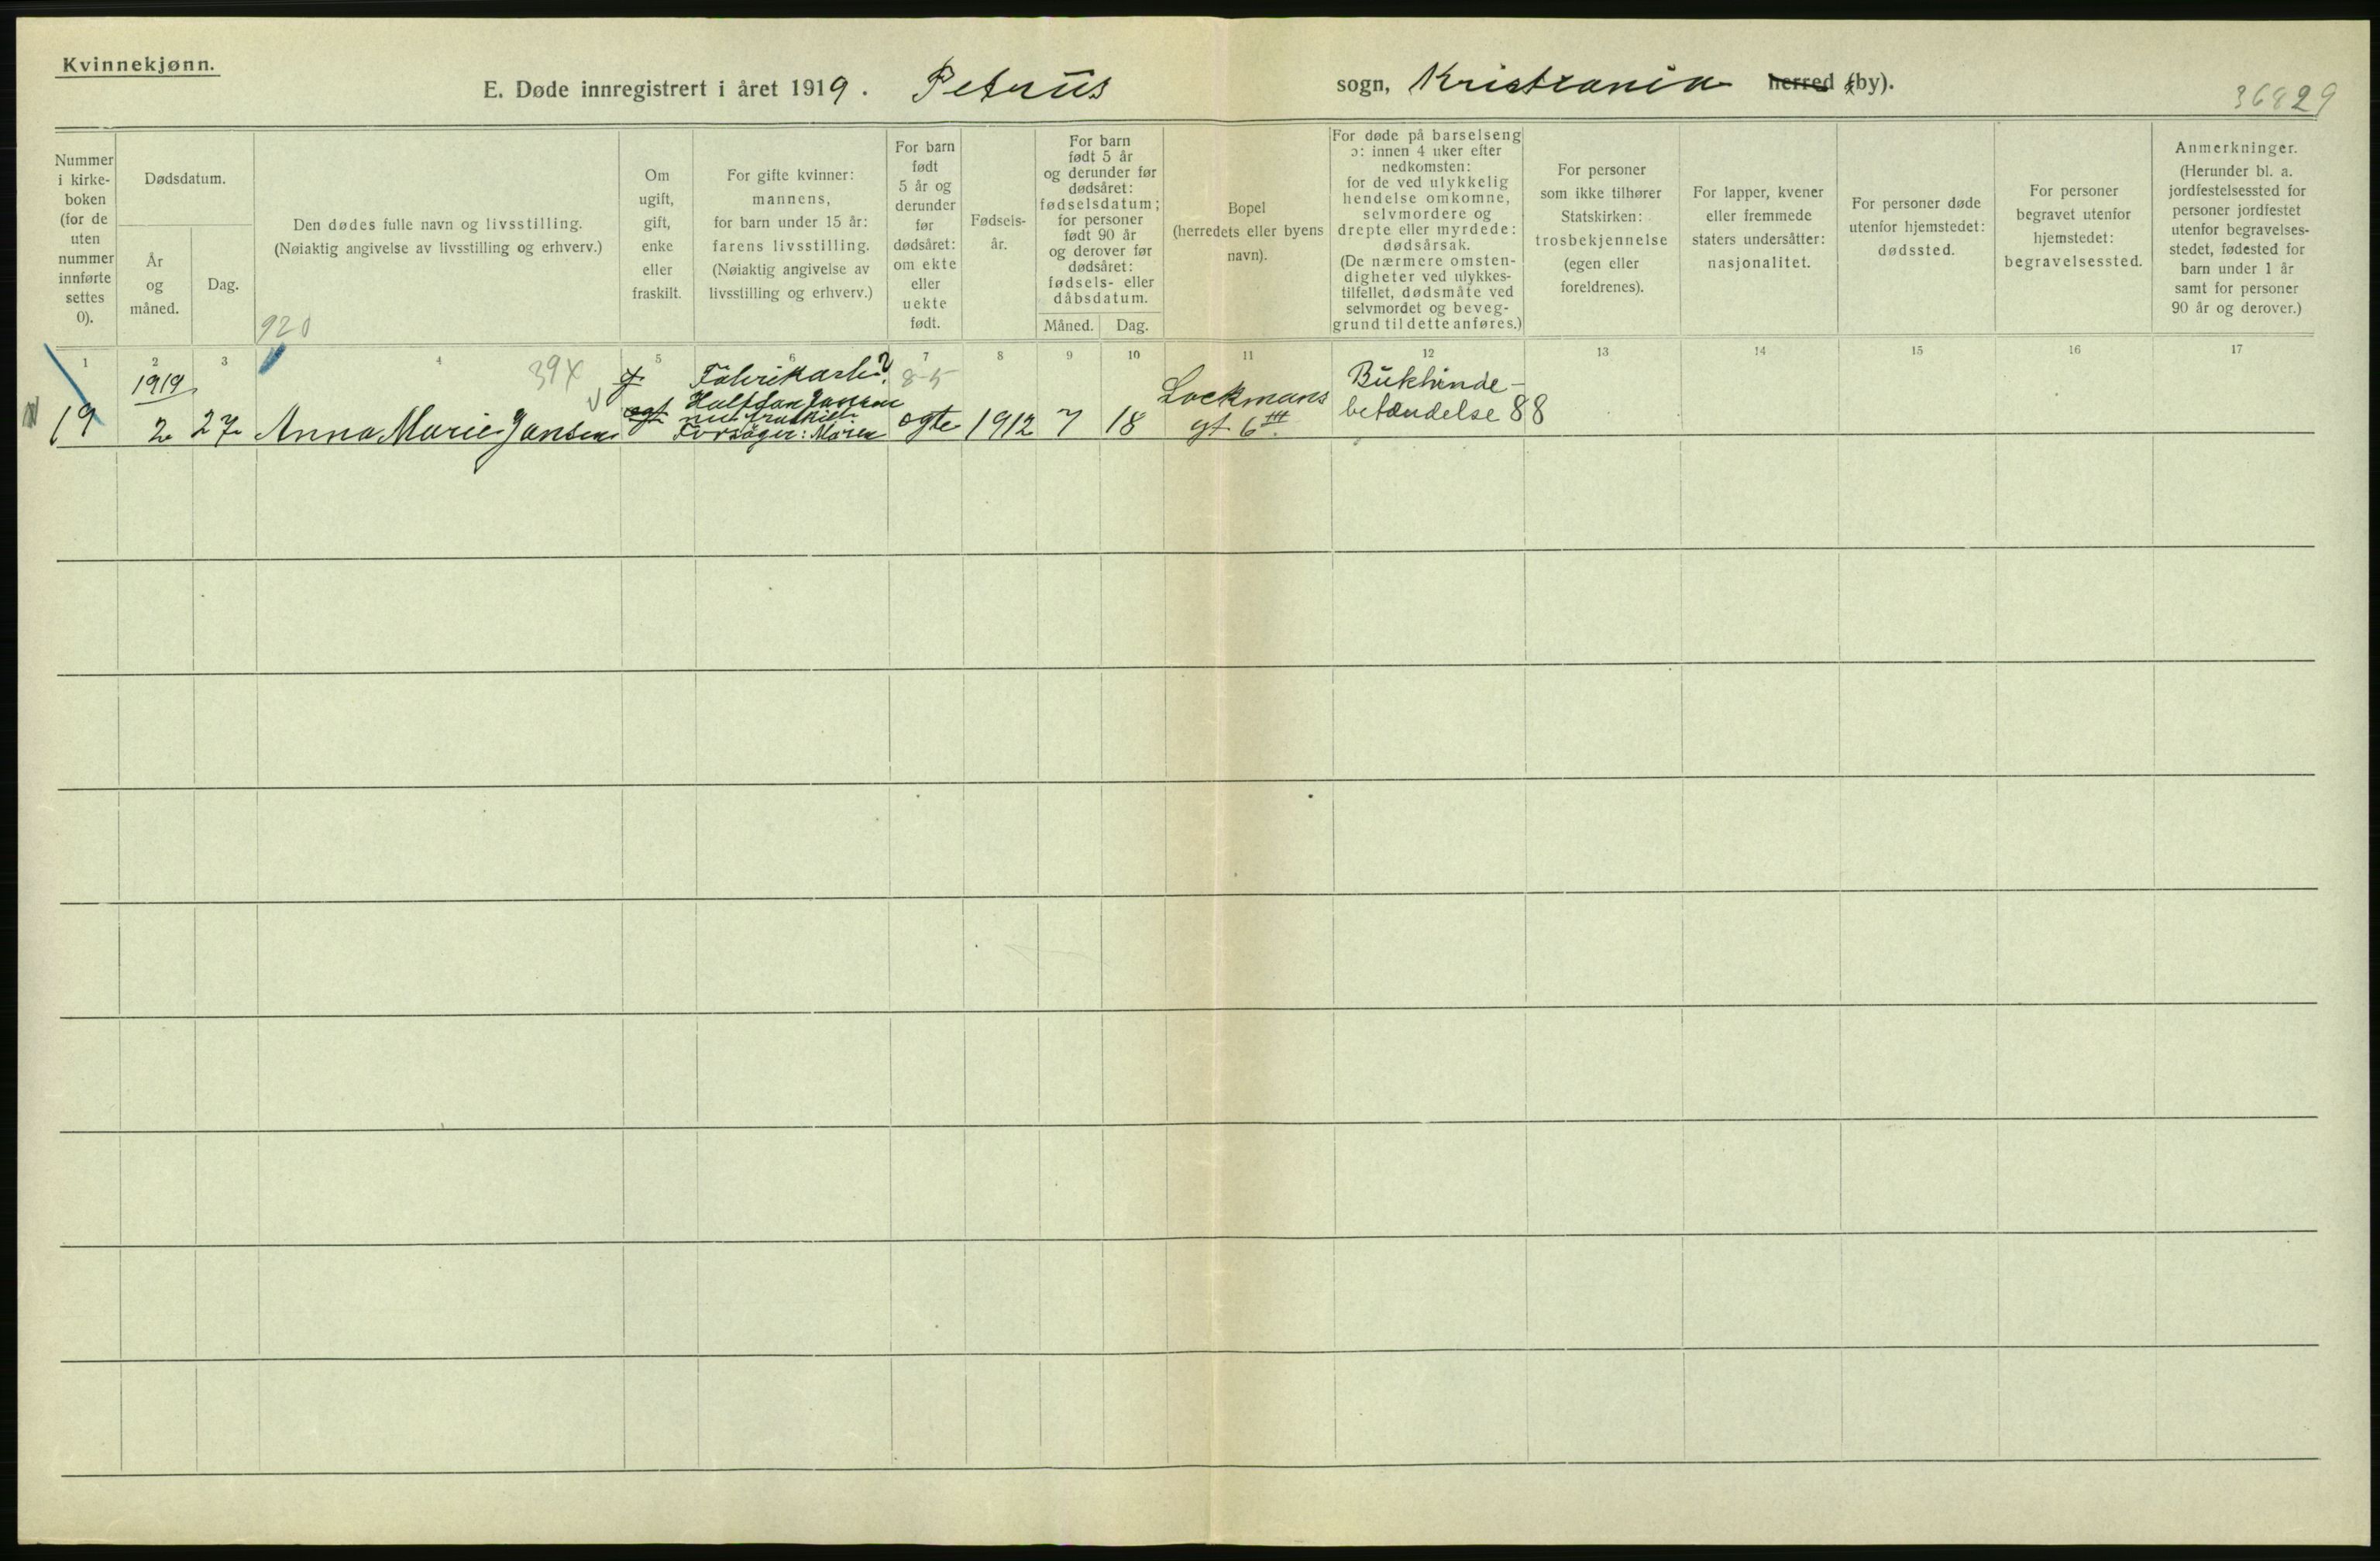 Kvinnekjønn.
E. Døde innregistrert i året 1919. Petrus sogn, Kristiania herred (by).
36829
Nummer
i kirke-
boken
(for de
uten
nummer
innførte
settes
0).
Dødsdatum.
År
og
måned.
Dag.
Den dødes fulle navn og livsstilling.
(Nøiaktig angivelse av livsstilling og erhverv.)
920
Om
ugift,
gift,
enke
eller
fraskilt.
For gifte kvinner:
mannens,
for barn under 15 år:
farens livsstilling.
(Nøiaktig angivelse av
livsstilling og erhverv.)
For barn
født
5 år og
derunder
før
dødsåret:
om ekte
eller
uekte
født.
Fødsels-
år.
For barn
født 5 år
og derunder før
dødsåret:
fødselsdatum;
for personer
født 90 år
og derover før
dødsåret:
fødsels- eller
dåbsdatum.
Måned.
Dag.
Bopel
(herredets eller byens
navn).
For døde på barselseng
ɔ: innen 4 uker efter
nedkomsten:
for de ved ulykkelig
hendelse omkomne,
selvmordere og
drepte eller myrdede:
dødsårsak.
(De nærmere omsten-
digheter ved ulykkes-
tilfellet, dødsmåte ved
selvmordet og beveg-
grund til dette anføres.)
For personer
som ikke tilhører
Statskirken:
trosbekjennelse
(egen eller
foreldrenes).
For lapper, kvener
eller fremmede
staters undersåtter:
nasjonalitet.
For personer døde
utenfor hjemstedet:
dødssted.
For personer
begravet utenfor
hjemstedet:
begravelsessted.
Anmerkninger.
(Herunder bl. a.
jordfestelsessted for
personer jordfestet
utenfor begravelses-
stedet, fødested for
barn under 1 år
samt for personer
90 år og derover.)
1 2 3 4 5 6 7 8 9 10 11 12 13 14 15 16 17
19
1919
2
27
39X
Anna Marie Jansen
Fabrikarb.?
Halfdan Jansen
Forsøger: Moren
8-5
ogte
1912
7
18
Lockmans
gt. 6 III
Bukhinde-
betændelse 88